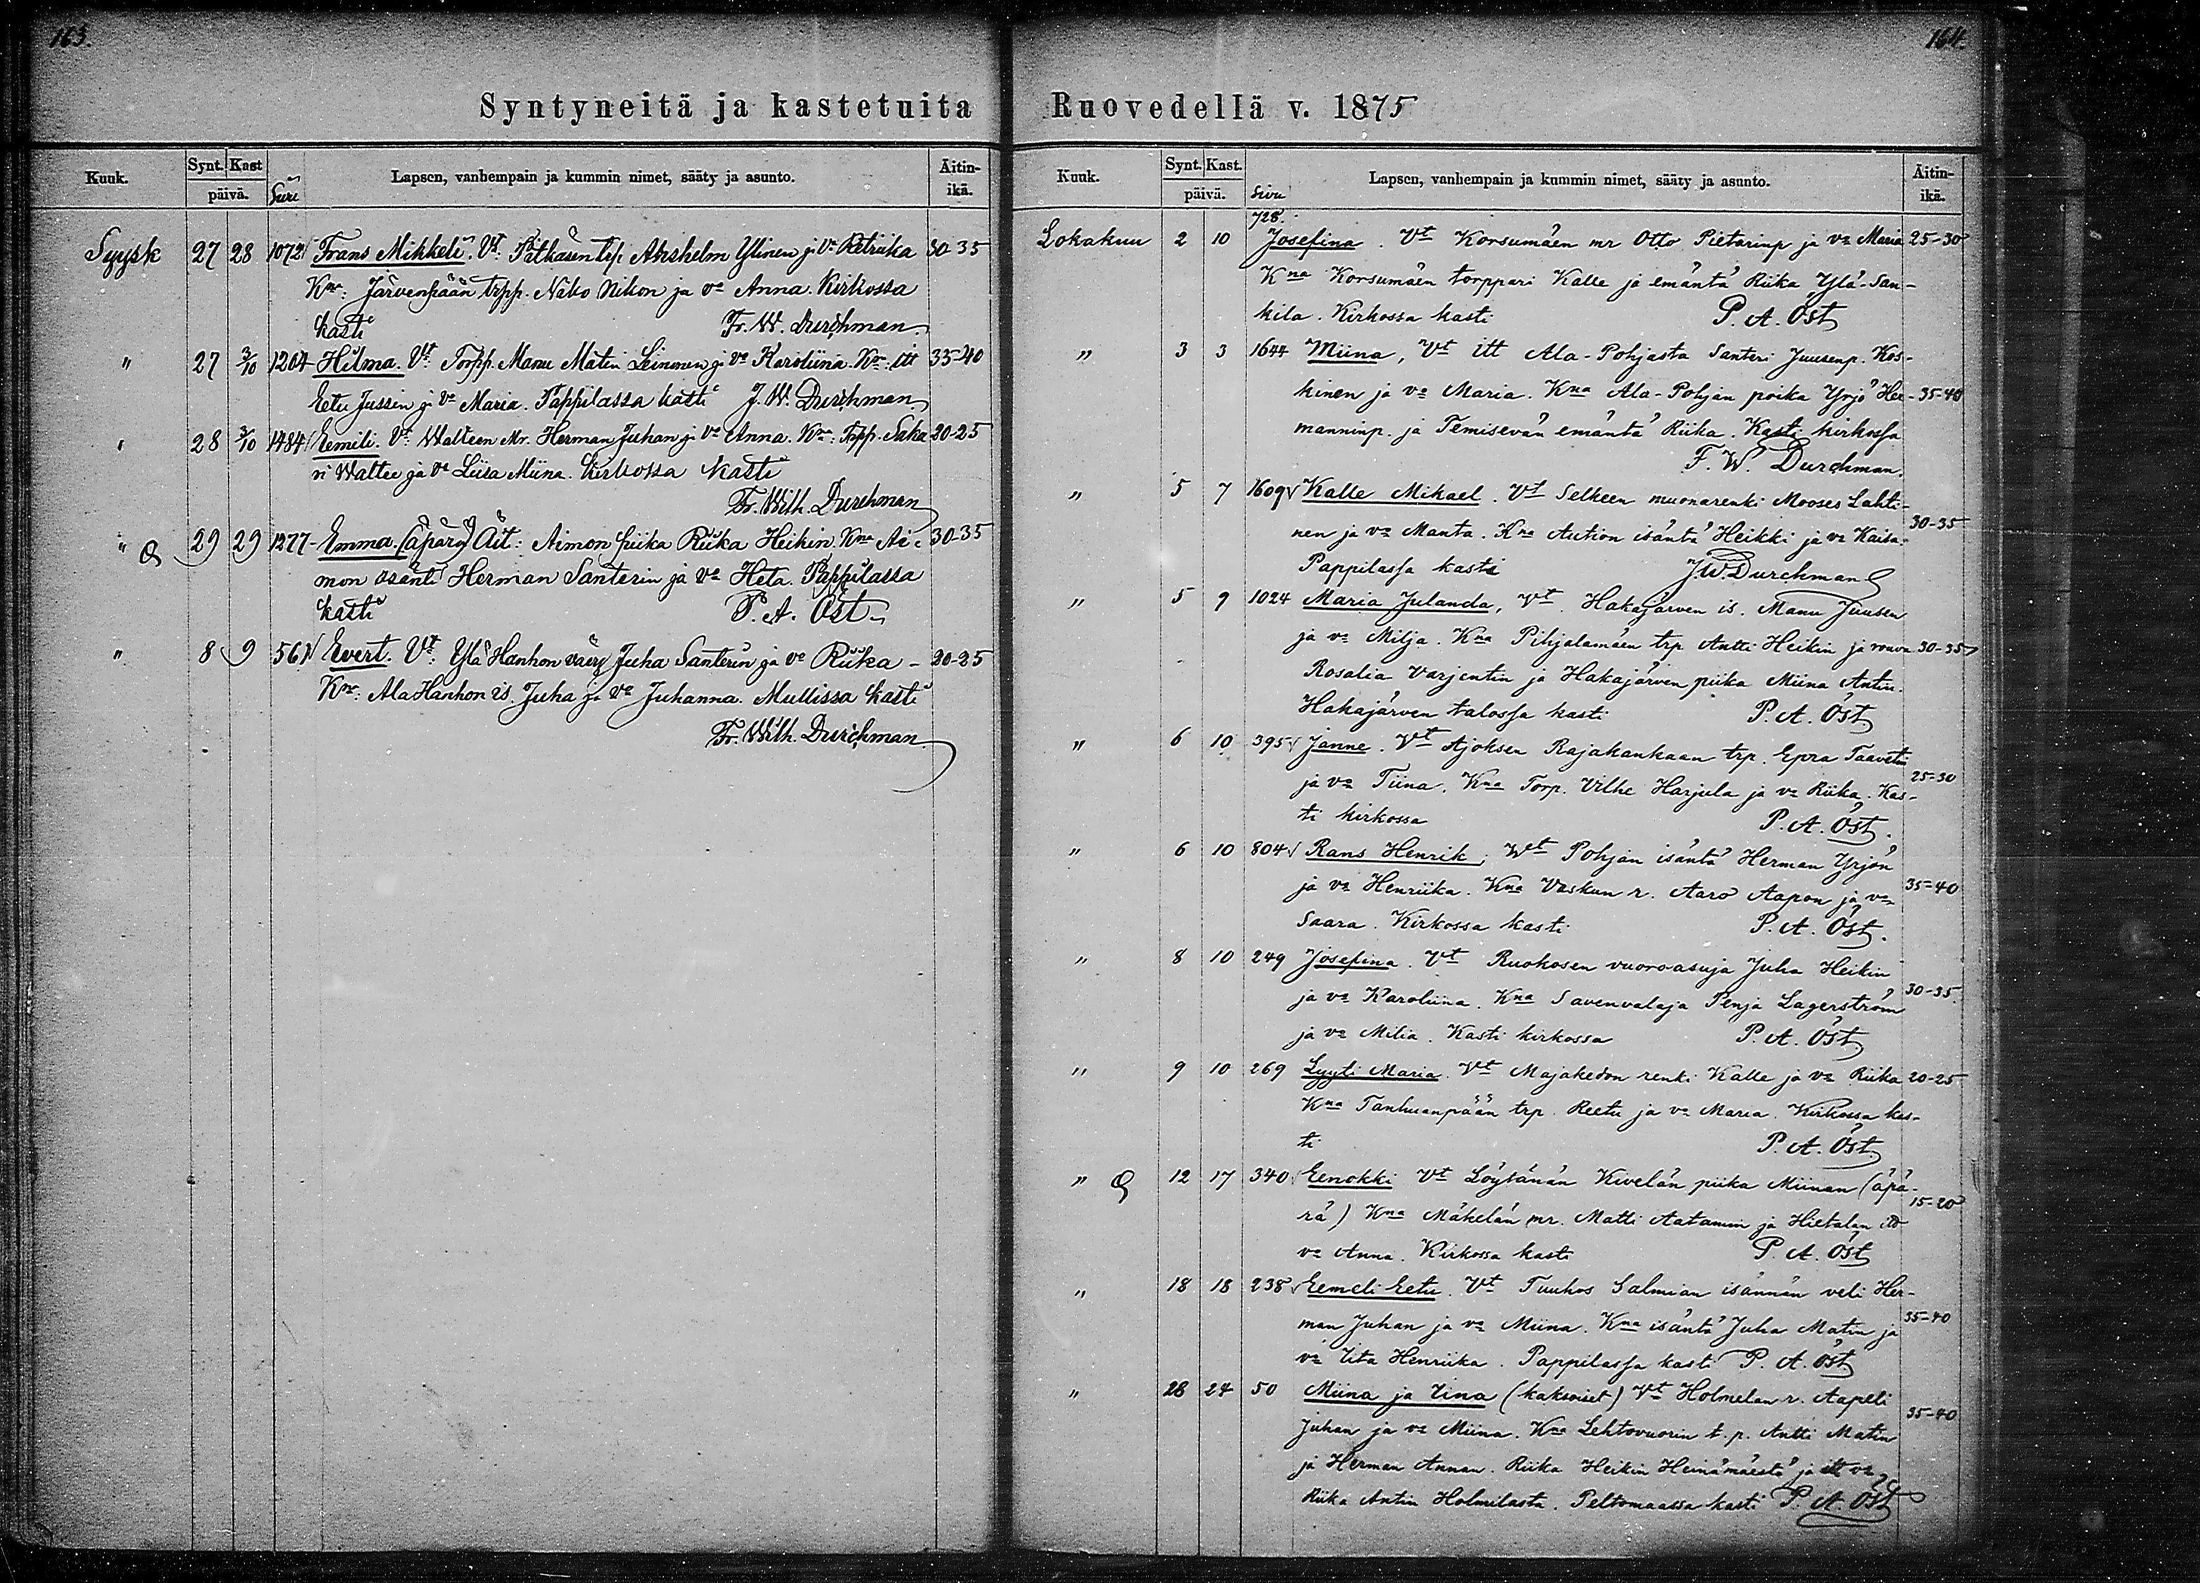 163.
Syntyneitä ja kastetuita
Kuuk. Synt. Kast päivä. Sivu Lapsen, vanhempain ja kummin nimet, sääty ja asunto. Äitin-ikä.
Syysk 27 28 1072 Frans Mikkeli. Vt. Pitkäsen trp. Ylinen ja va 30-35
Kna: Järvenpään trpp. Nikon ja va Anna. Kirkossa
kasti Fr. W. Durchman.
" 27 3/10 1204 Hilma. Vt. Torpp. Manu Matin Leinonen ja va Karoliina. Kna: itt 35-40
Eetu Jussin ja va Maria. Pappilassa kasti J. W. Durchman
" 28 3/10 1484 Eemili. Vt. Walteen Mr. Herman Juhan ja va Anna. Kna: Trpp. Saka 20-25
ri Waltee ja va Liisa Miina. Kirkossa kasti
Fr. Wilh. Durchman
" 29 29 1277 Emma. (äpärä) Äit: Aimon piika Riika Heikin. Kna Ai- 30-35
mon isäntä Herman Santerin ja va Heta. Pappilassa
kasti P. A. Öst
" 8 9 561 Evert. Vt: Ylä Hanhon Juha Santerin ja va Riika - 20-25
Kna: Ala Hanhon is. Juha ja va Juhanna. Mullissa kasti
Fr. Wilh. Durchman
164.
Ruovedellä v. 1875
Kuuk. Synt. Kast. päivä. Sivu Lapsen, vanhempain ja kummin nimet, sääty ja asunto. Äitin-ikä.
Lokakuu 2 10 728. Josefina. Vt Korsumäen mr Otto Pietarinp ja va Maria 25-30
Kna Korsumäen torppari Kalle ja emäntä Riika Ylä-San-
kila. Kirkossa kasti P. A. Öst
" 3 3 1644 Miina, Vt itt Ala-Pohjasta Santeri Juusenp. Kos-
kinen ja va Maria. Kna Ala-Pohjan poika Yrjö Her- 35-40
manninp. ja Temisevän emäntä Riika. Kasti kirkossa
F. W. Durchman.
" 5 7 1609 Kalle Mikael. Vt Selkeen muonarenki Mooses Lahti-
nen ja va Manta. Kna Aution isäntä Heikki ja va Kaisa. 30-35
Pappilassa kasti J. W. Durchman
" 5 9 1024 Maria Julanda, Vt. Hakajärven is. Manu Juusen
ja va Milja. Kna Pihjalamäen trp Antti Heikin ja rouva 30-35
Rosalia Varjentin ja Hakajärven piika Miina Antin.
Hakajärven talossa kasti P. A. Öst
" 6 10 395 Janne. Vt Ajoksen Rajakankaan trp. Epra Taavetin
ja va Tiina. Kna Torp. Vilhe Harjula ja va Riika. Kas- 25-30
ti kirkossa P. A. Öst.
" 6 10 804 Rans Henrik; Wt Pohjan isäntä Herman Yrjön
ja va Henriika. Kna Vaskun r. Aaro Aapon ja va 35-40
Saara. Kirkossa kasti P. A. Öst.
" 8 10 249 Josefina. Vt Ruokosen vuoroasuja Juha Heikin
ja va Karoliina. Kna Savenvalaja Penja Lagerström 30-35
ja va Milia. Kasti kirkossa P. A. Öst
" 9 10 269 Lyyti Maria. Vt Majakedon renki Kalle ja va Riika 20-25
Kna Tanhuanpään trp. Reetu ja va Maria. Kirkossa kas-
ti P. A. Öst
" 12 17 340 Eenokki Vt Löytänän Kivelän piika Miinan (äpä-
rä) Kna Mäkelän mr. Matti Aatamin ja Hietalan itt 15-20
va Anna. Kirkossa kasti P. A. Öst
" 18 18 238 Eemeli Eetu. Vt Tuuhos Salmian isännän veli Her-
man Juhan ja va Miina. Kna isäntä Juha Matin ja 35-40
va Iita Henriika. Pappilassa kasti P. A. Öst
" 28 24 50 Miina ja Iina (kaksoiset) Vt Holmelan r. Aapeli
Juhan ja va Miina. Kna Lehtovuorin t.p. Antti Matin 35-40
ja Herman Annan. Riika Heikin Heinämäestä ja itt va
Riika Antin Holmilasta. Peltomaassa kasti P. A. Öst